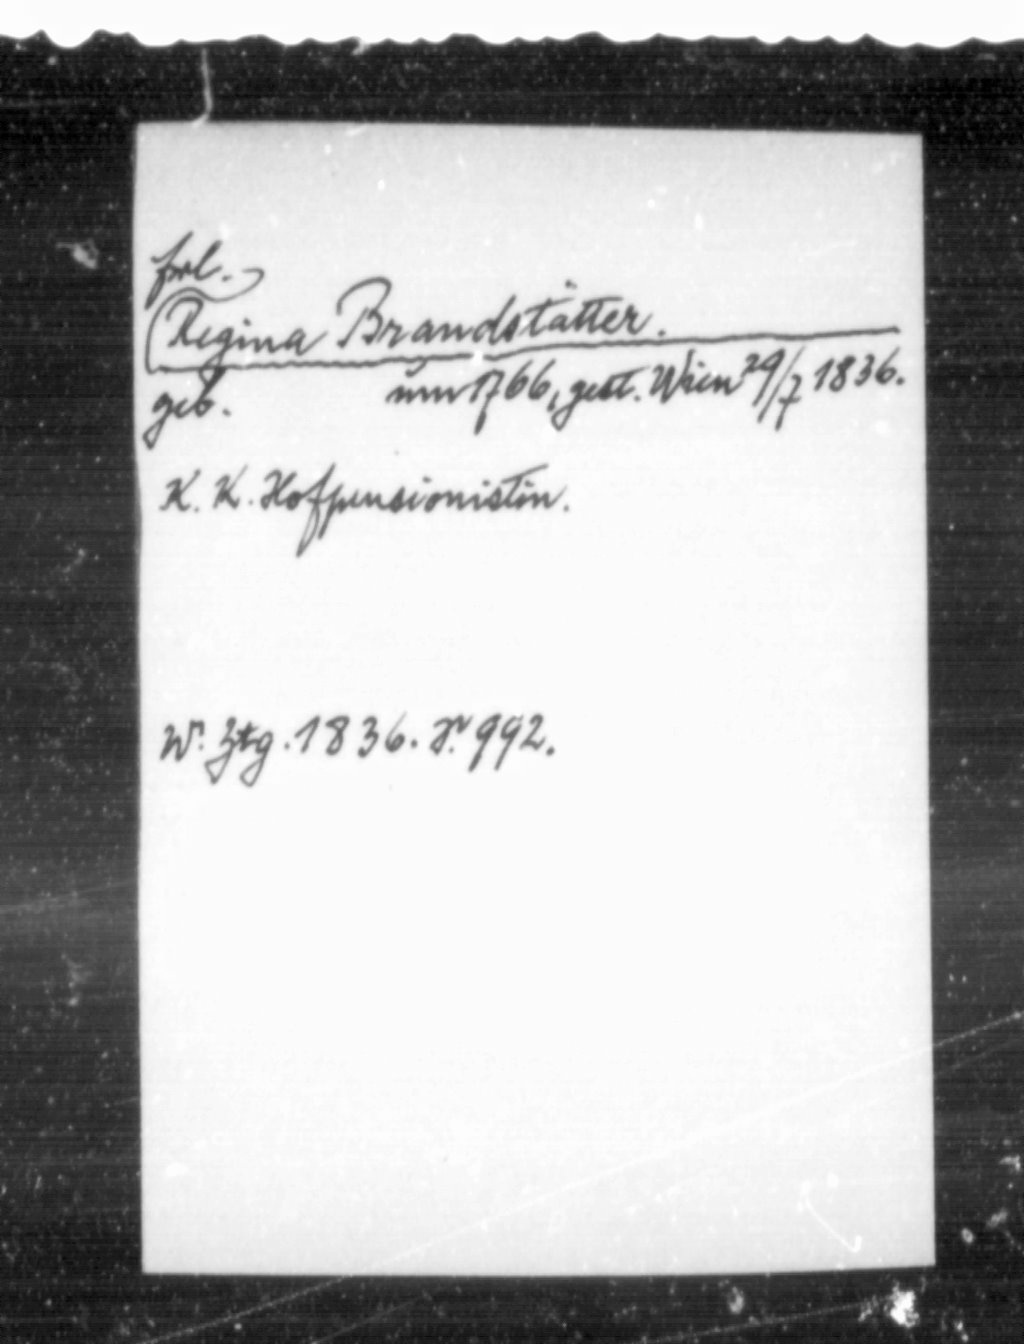 frl.
Regina Brandstätter.
geb. um 1766, gest. Wien 29/7 1836.
K. K. Hofpensionistin.
W. Ztg. 1836. S. 992.